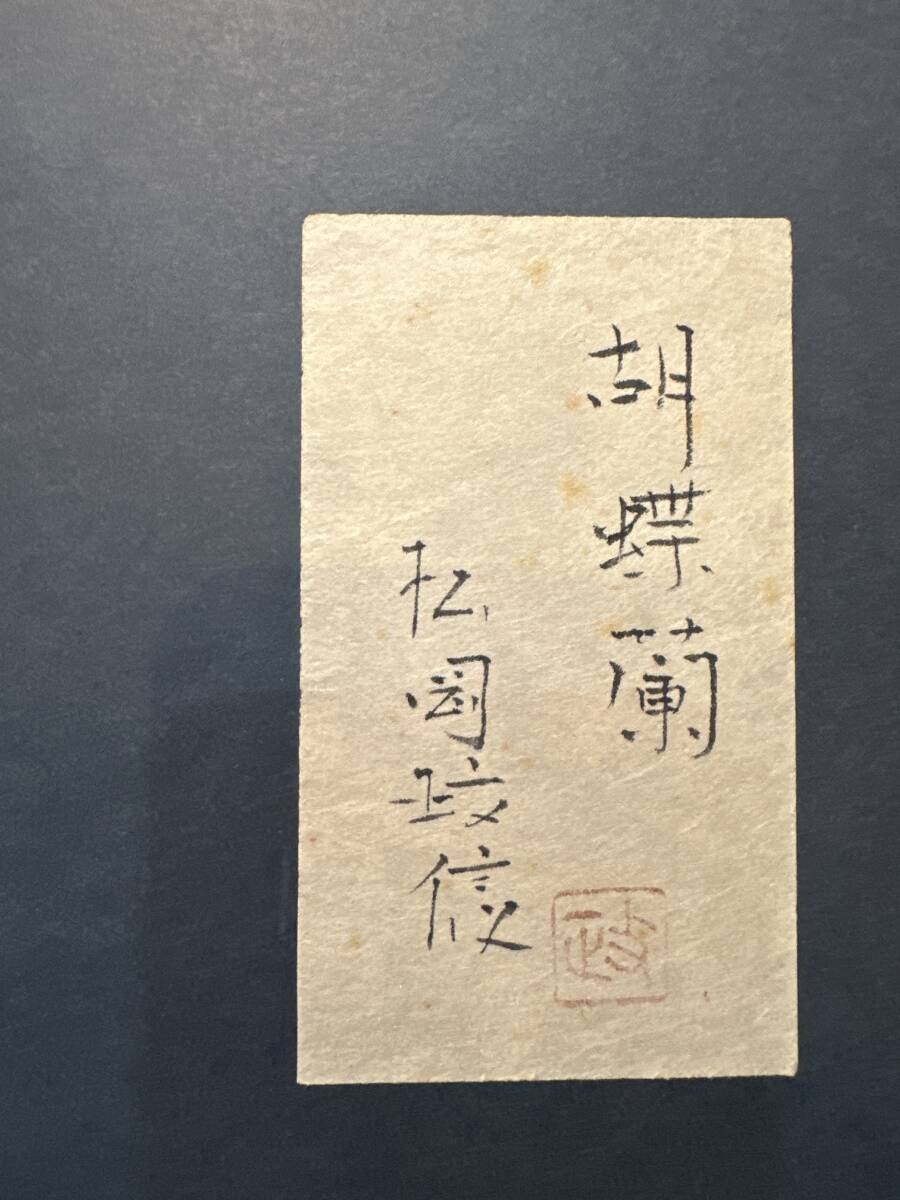 胡蝶蘭
松岡政信
政